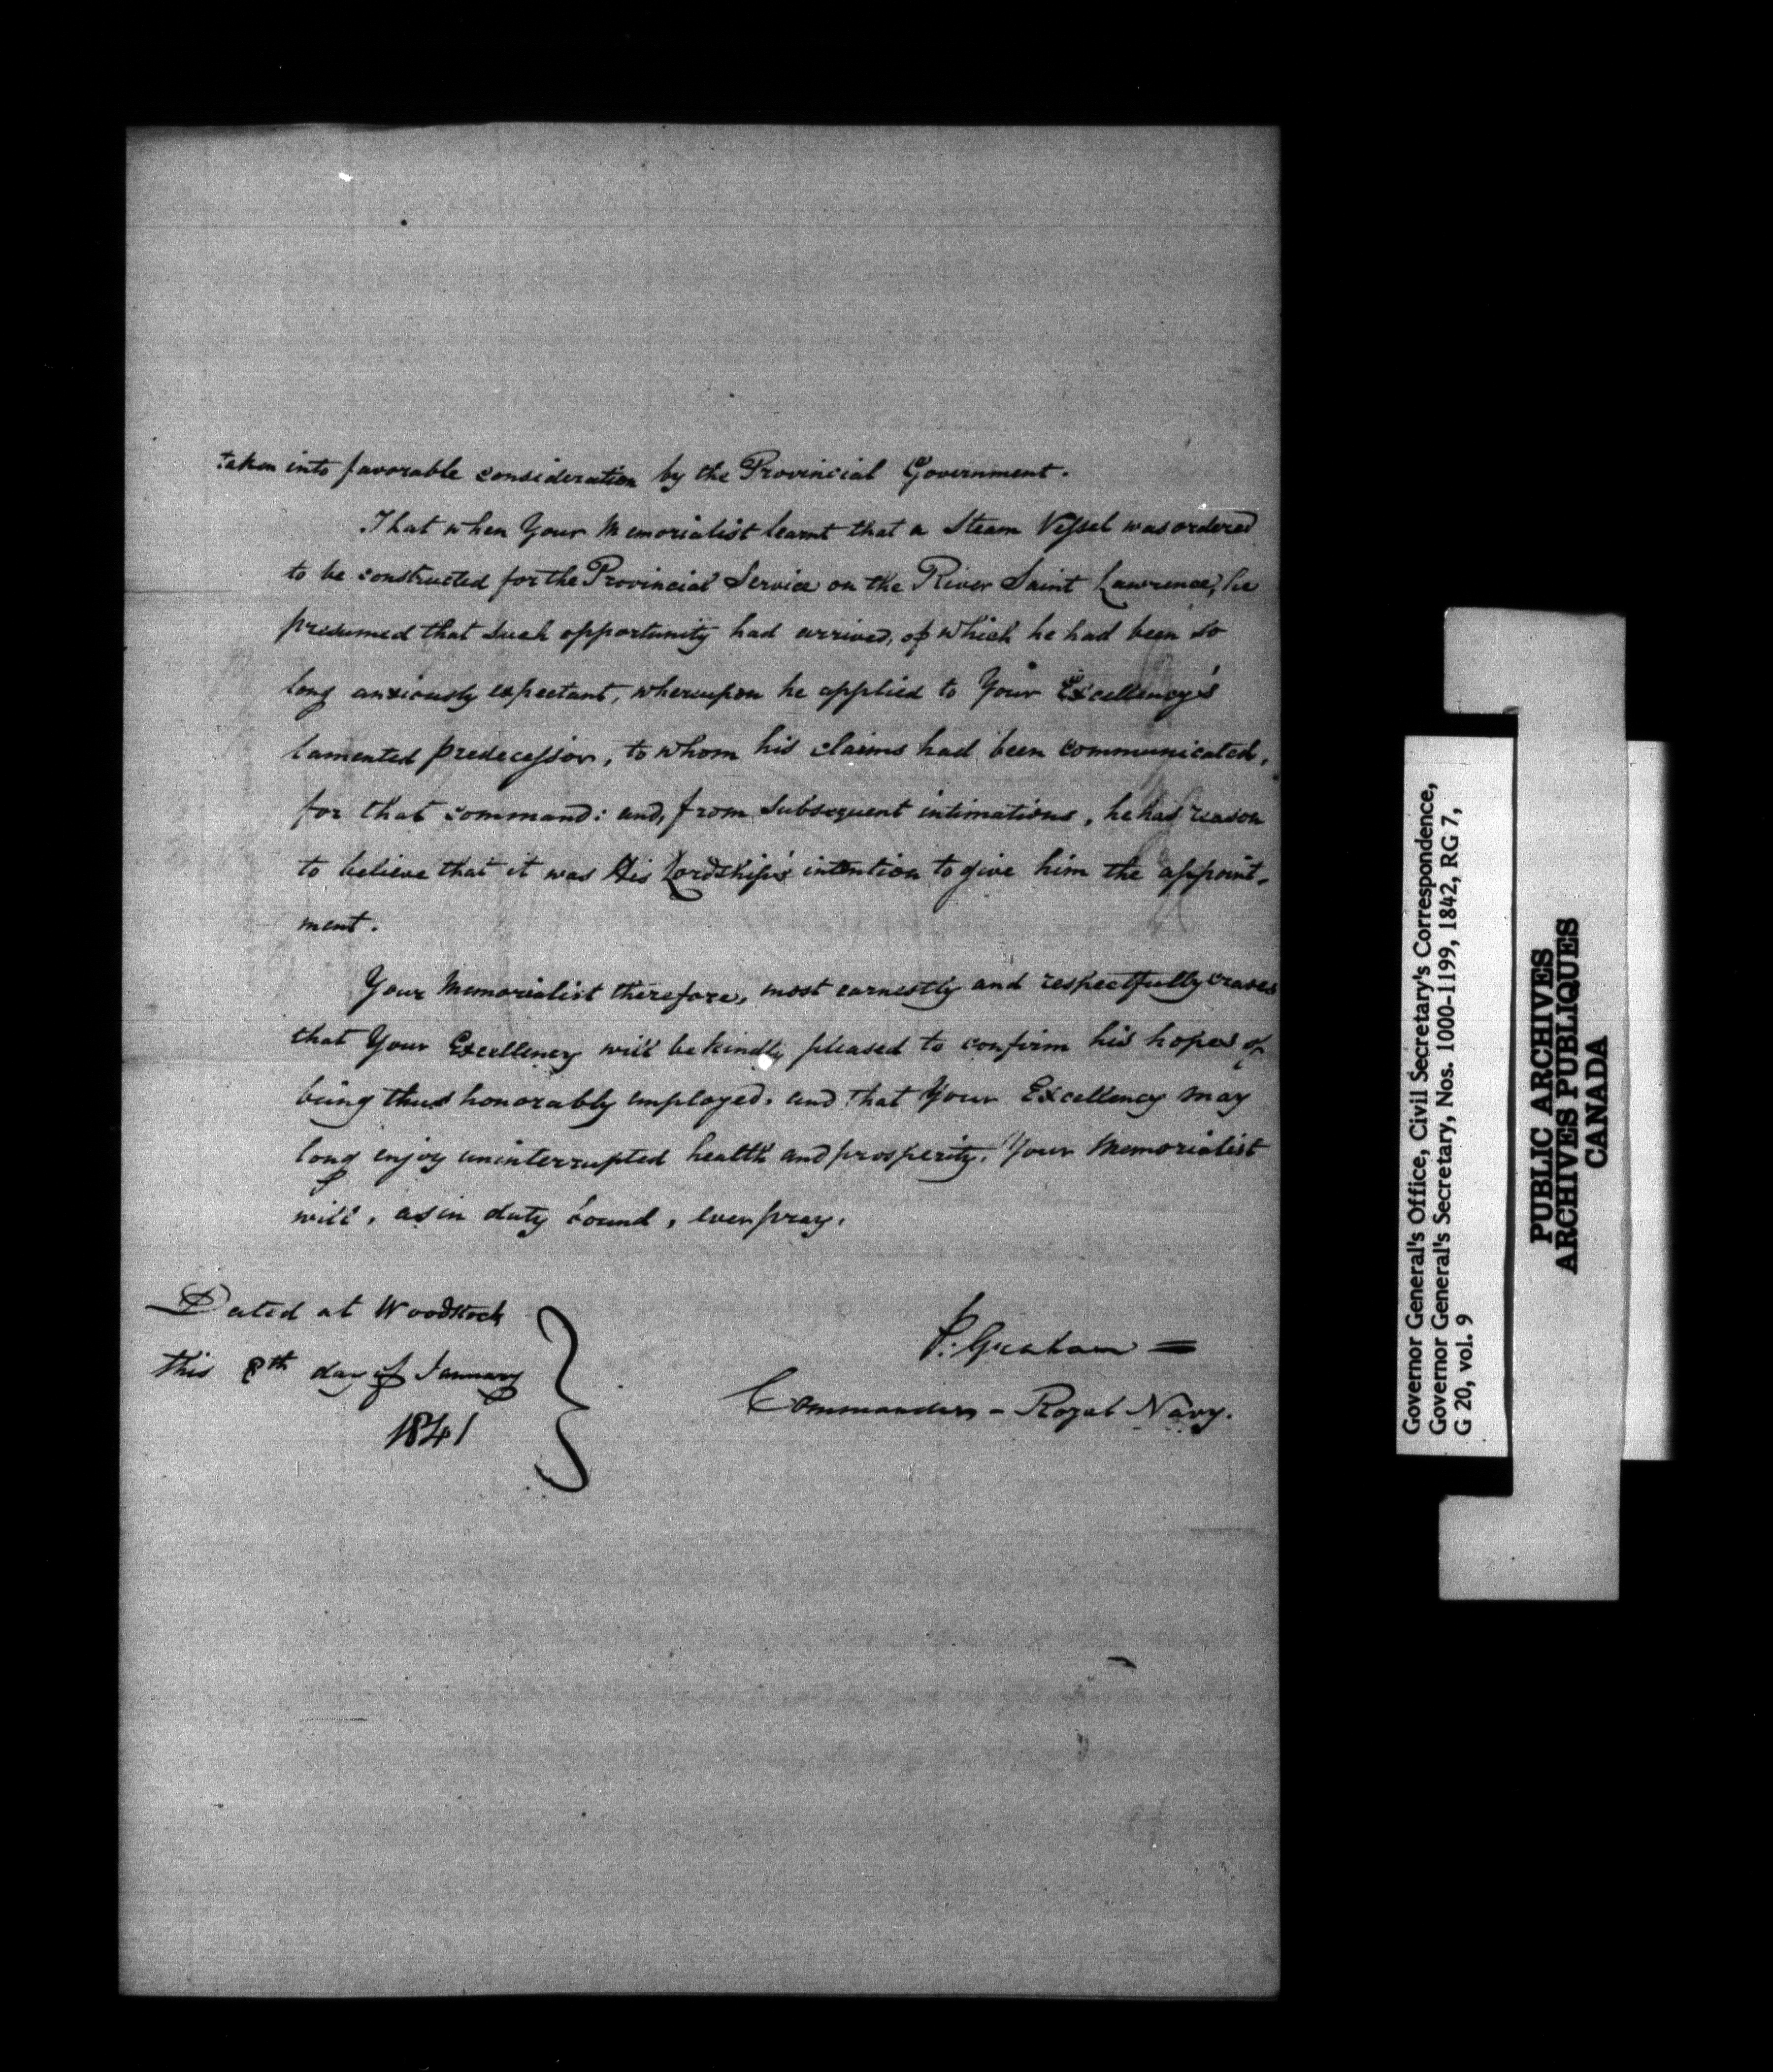 taken into favorable consideration by the Provincial Government.
That when Your Memorialist learnt that a Steam Vessel was ordered
to be constructed for the Provincial Service on the River Saint Lawrence, he
presumed that such opportunity had arrived, of which he had been so
long anxiously expectant, whereupon he applied to Your Excellency's
lamented predecessor, to whom his claims had been communicated,
for that command: and, from subsequent intimations, he has reason
to believe that it was His Lordship's intention to give him the appoint-
ment.
Your Memorialist therefore, most earnestly and respectfully craves
that Your Excellency will be kindly pleased to confirm his hopes of
being thus honorably employed. and that Your Excellency may
long enjoy uninterrupted health and prosperity, Your Memorialist
will, as in duty bound, ever pray.
Dated at Woodstock
this 8th day of January
1841
P. Graham =
Commander - Royal Navy.
Governor General's Office, Civil Secretary's Correspondence,
Governor General's Secretary, Nos. 1000-1199, 1842, RG 7,
G 20, vol. 9
PUBLIC ARCHIVES
ARCHIVES PUBLIQUES
CANADA